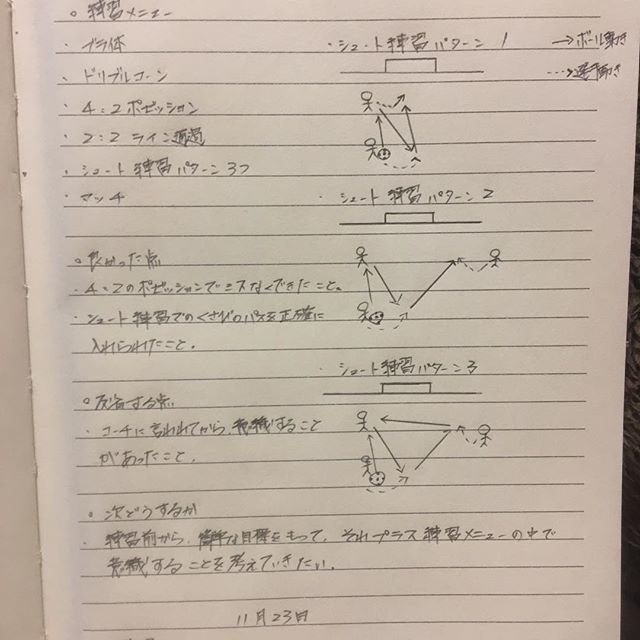 ○ 練習メニュー
・ブラ体
・ドリブルコーン
・4:2 ポゼッション
・2:2 ライン通過
・シュート練習パターン3つ
・マッチ
・シュート練習パターン 1
→ボール動き
⇢選手動き
・シュート練習パターン 2
・シュート練習パターン 3
○良かった点
・4:2のポゼッションでミスなくできたこと。
・シュート練習でのくさびのパスを正確に
入れられたこと。
○反省する点
・コーチに言われてから、意識すること
があったこと。
○次どうするか
・練習前から、簡単な目標をもって、それプラス練習メニューの中で
意識することを考えていきたい。
11月23日